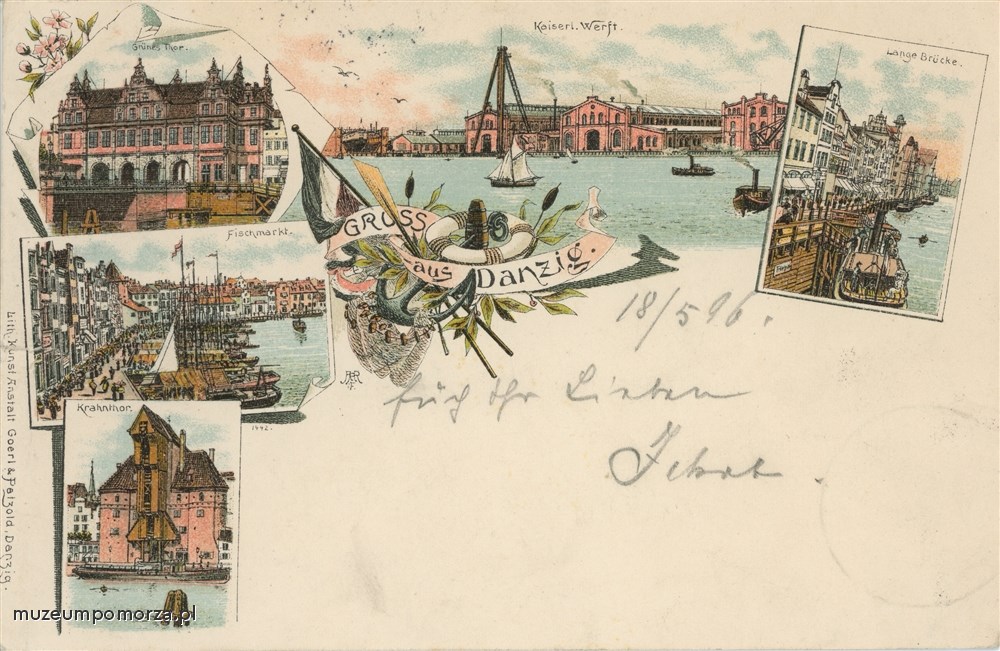 Grünes Thor.
Kaiserl. Werft.
Lange Brücke.
GRUSS
aus Danzig.
Fischmarkt.
18/5 96.
Ihr Lieben
Krahnthor.
1442.
Lith. Kunst Anstalt Goerl & Patzold, Danzig.
muzeumpomorza.pl